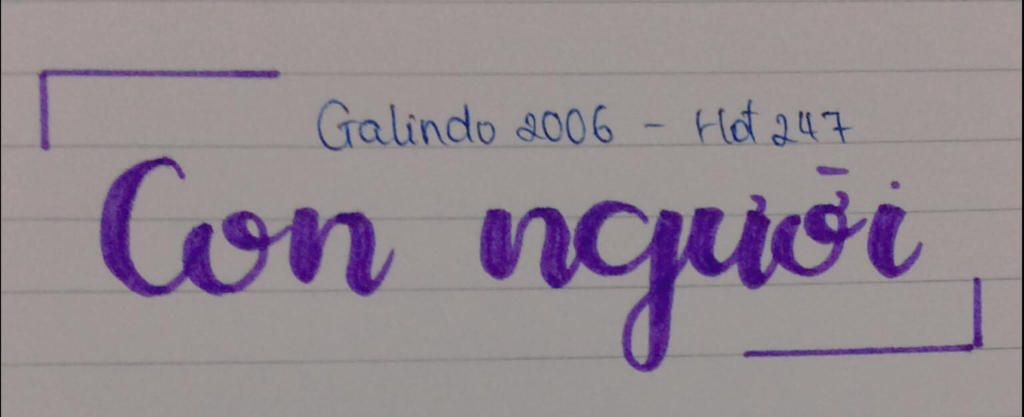 Galindo 2006 - Hot 247
Con người